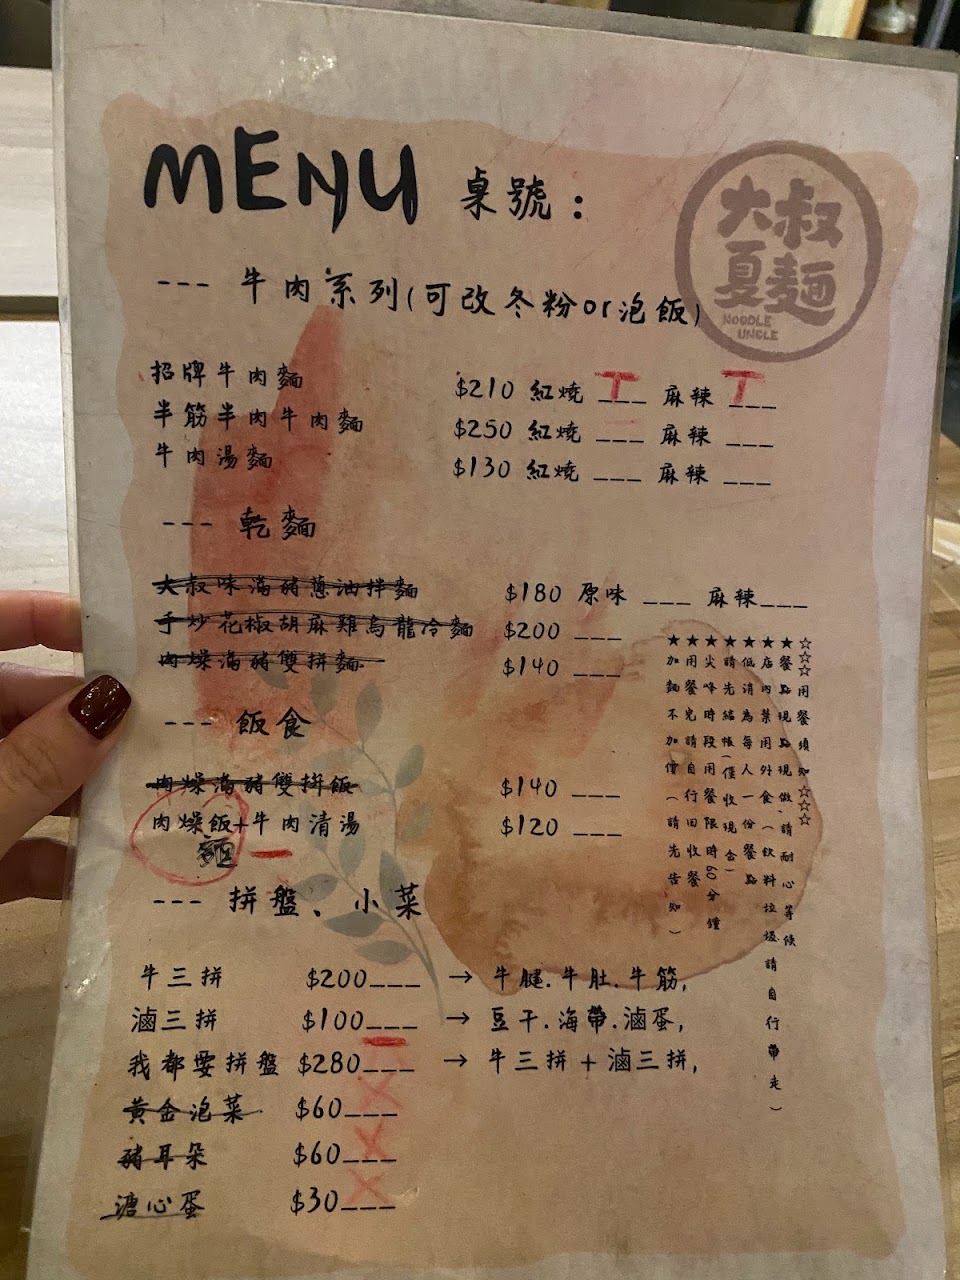 MENU 桌號:
大叔
夏麵
NOODLE
UNCLE
--- 牛肉系列(可改冬粉or泡飯)
招牌牛肉麵 $210 紅燒 ___ 麻辣 ___
半筋半肉牛肉麵 $250 紅燒 ___ 麻辣 ___
牛肉湯麵 $130 紅燒 ___ 麻辣 ___
--- 乾麵
大叔味滷豬蔥油拌麵 $180 原味 ___ 麻辣___
手炒花椒胡麻雞烏龍冷麵 $200 ___
肉燥滷豬雙拼麵 $140 ___
--- 飯食
肉燥滷豬雙拼飯 $140 ___
肉燥飯+牛肉清湯 $120 ___
麵
☆☆☆用餐須知☆☆☆
★餐點現點現做,請耐心等候
★店內禁用外食(飲料垃圾請自行帶走)
★低消為每人一份餐點
★請先結帳(僅收現金)
★尖峰時段用餐限時60分鐘
★用餐完請自行回收餐
★加麵不加價(請先告知)
--- 拼盤、小菜
牛三拼 $200___ → 牛腱.牛肚.牛筋,
滷三拼 $100___ → 豆干.海帶.滷蛋,
我都要拼盤 $280___ → 牛三拼+滷三拼,
黃金泡菜 $60___
豬耳朵 $60___
溏心蛋 $30___